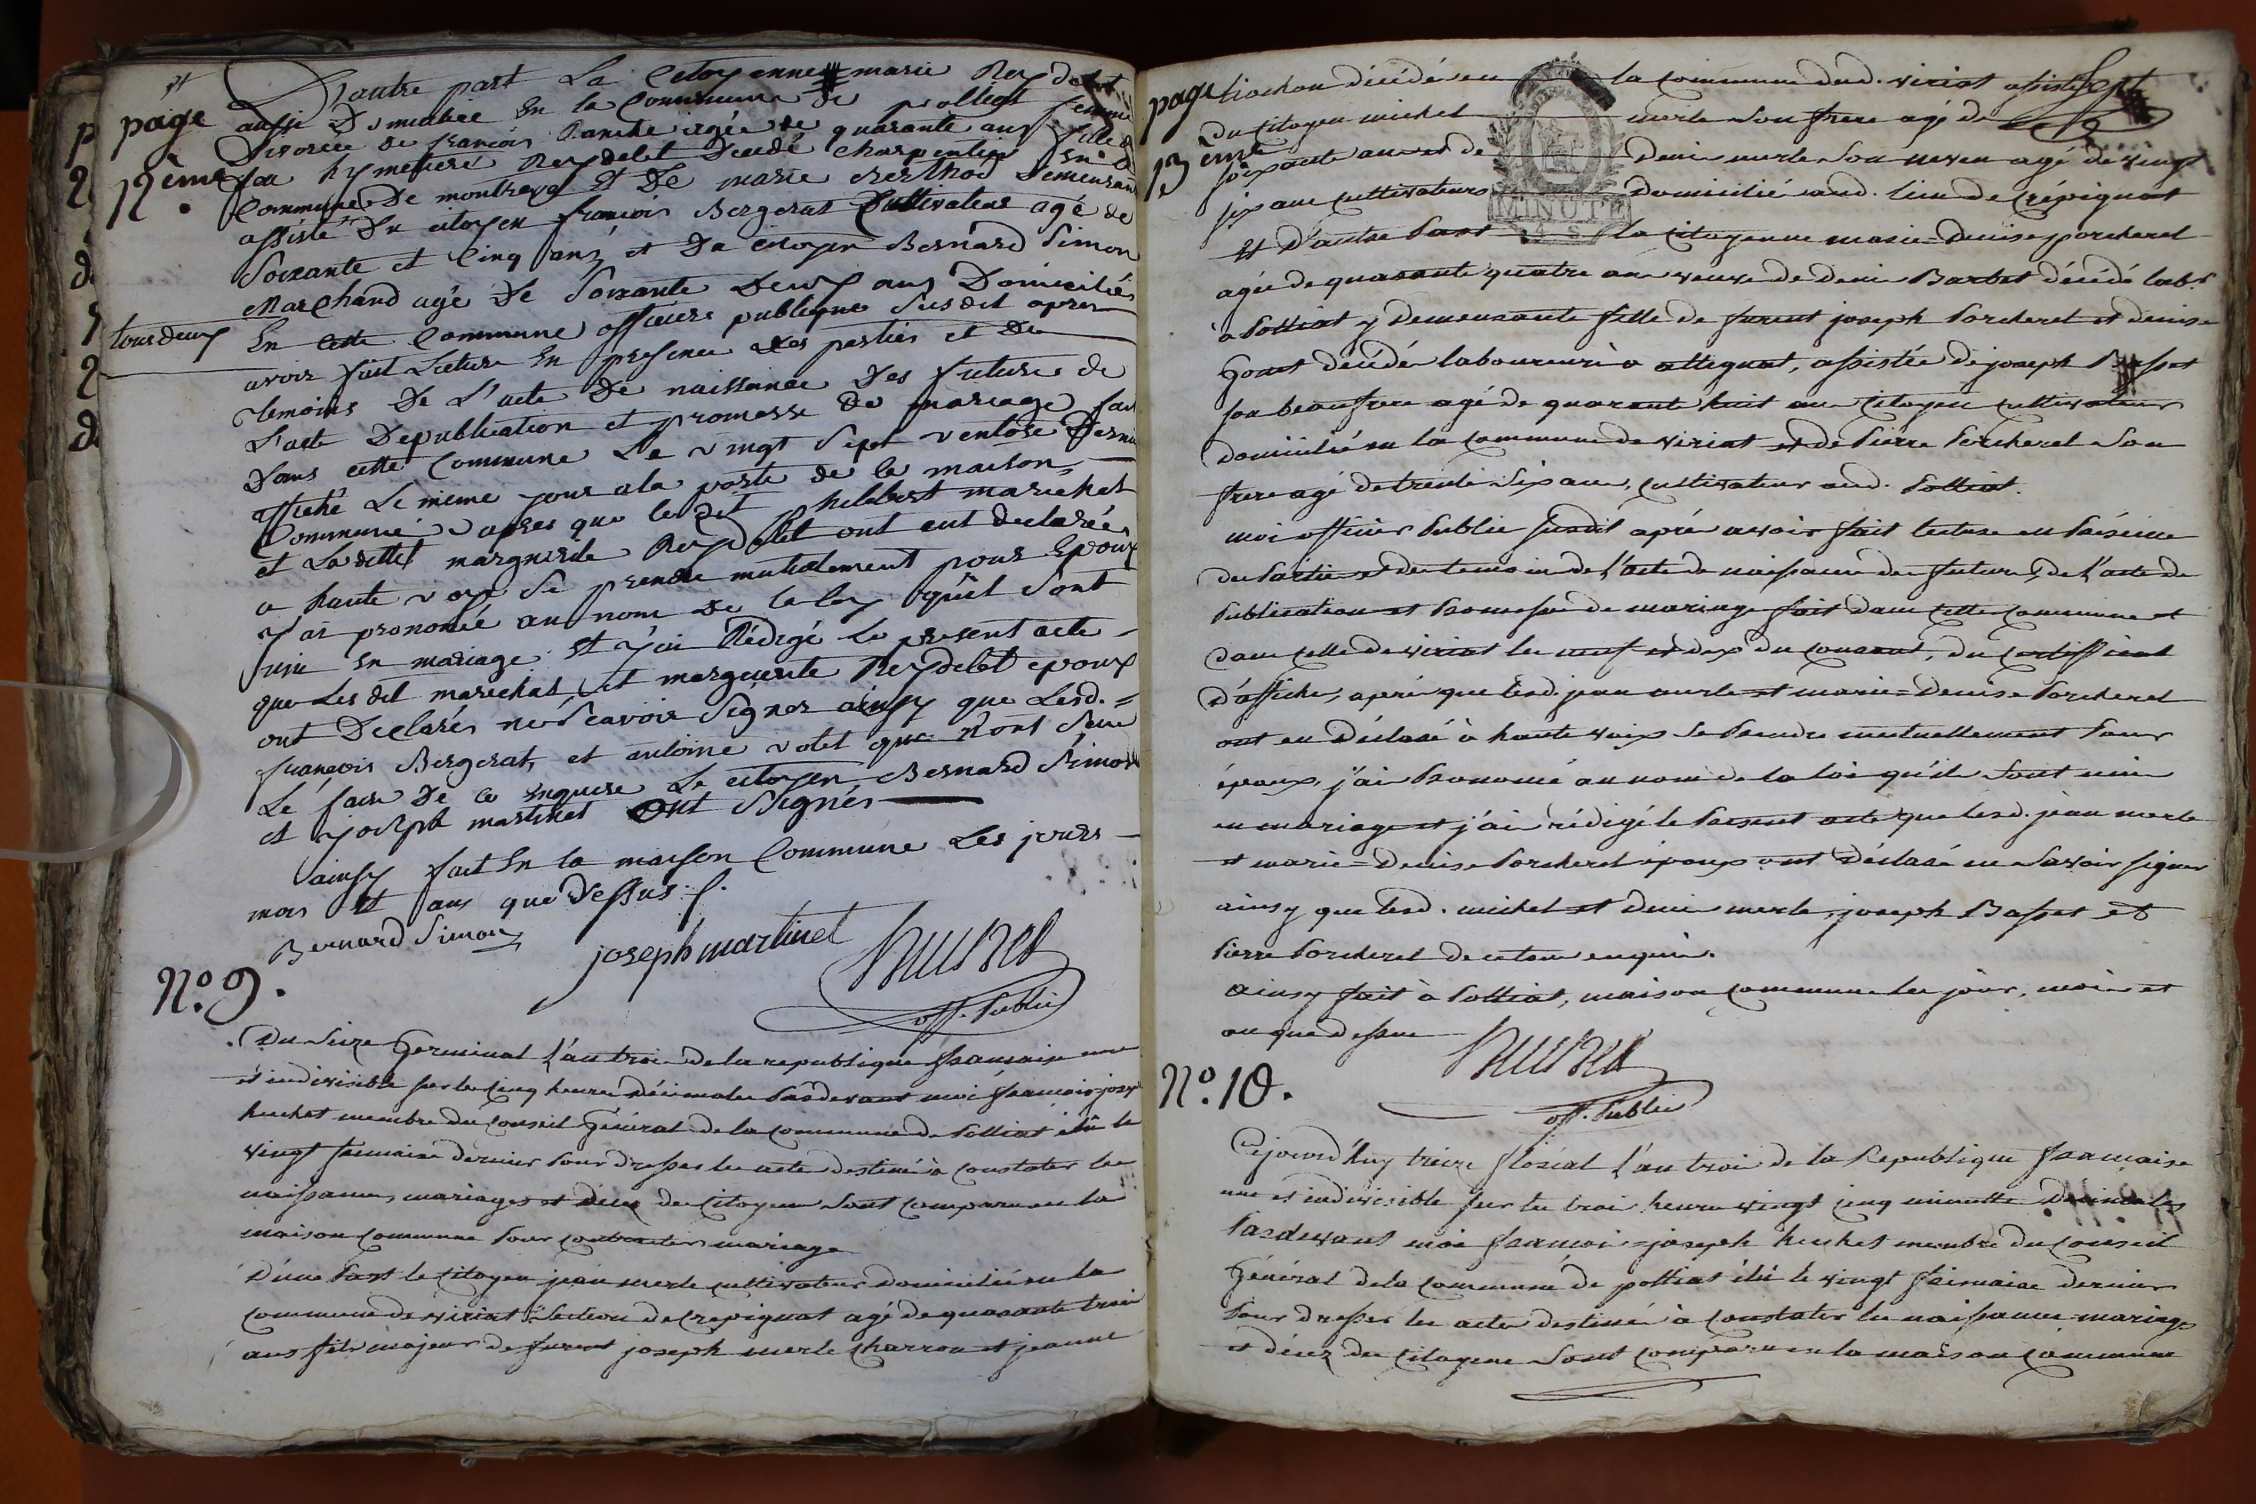 page
12ème
D'autre part La Citoyenne marie Reydelet
aussi Domiciliée En la Commune de polliat femme
Divorcée de françois agée de quarante ans fille de
feu hymetiere Reydelet Decedé charpentier En la
Commune De montrevel Et De marie Berthod Demeurant
assistée Du citoyen françois Bergerat Cultivateur agé de
Soixante et Cinq ans et Du citoyen Bernard Simon
Marchand agé De Soixante Deux ans Domiciliés
tous deux
En cette Commune officiers publique Susdit apres
avoir fait Lecture En presence des parties et De
temoins De L'acte De naissance Des futures de
L'acte Depublication et promesse de mariage fait
Dans cette Commune Le vingt Sept ventose Dernier
affiché Le meme jour a la porte de la maison
Commune apres que ledit philibert marechat
et Laditte marguerite Reydelet ont eut declarée
a haute voix Se prendre mutuelement pour Epoux
J'ai prononcé au nom de la loy qu'il Sont
unie En mariage Et j'ai Rédigé Le present acte
que Les dit marechat et marguerite Reydelet epoux
ont Declarés ne Sçavoir Signer ainsy que Lesd.=
françois Bergerat, et antoine volet que n'ont Seu
Le faire De ce Enquere Le citoyen Bernard Simon
et joseph martinet ont Signés
ainsy fait En la maison Commune Les jours
mois Et ans que Dessus
Bernard Simon joseph martinet huchet
off. Public
N.º 9.
Du Seize Germinal L'an troi de la republique francaise une
et indivisible sur les cinq heures décimales Pardevant moi francois joseph
huchet membre du conseil Général de la commune de Polliat élû le
vingt frimaire dernier Pour dresser les acte destiné à constater les
naissances, mariages et décez des citoyens Sont comparu en la
maison commune Pour contracter mariage
D'une Part le citoyen jean merle cultivateur domicilié en la
commune de viriat Section de crepignat agé de quarante trois
ans fils majeur de furent joseph merle charron et jeanne
page
13ème
Sept
tiochon décédé en la commune dud. viriat assisté
du citoyen michel merle Son frere agé de
soixante ans et de Denis merle Son neveu agé de vingt
six ans cultivateurs domicilié aud. lieu de crépignat
MINUTE
4 S
Et D'autre Part la citoyenne marie=Denise porcheret
agée de quarante quatre ans veuve de Denis Barbet décédé lab.r
à Polliat y Demeurante fille de furent joseph Porcheret et denise
Gonet décédé laboureurs à attignat, assistée de joseph Basset
son beaufrere agé de quarante huit ans citoyen cultivateur
domicilié en la commune de viriat et de Pierre Porcheret Son
frere agé de trente Six ans, cultivateur aud. Polliat.
moi officier Public susdit aprés avoir fait lecture en Présence
des Parties et des temoins de l'acte de naissance des futurs, de l'acte de
Publication et Promesse de mariage fait dans cette commune et
dans celle de viriat les neuf et dix du courant, du certifficat
d'affiche, aprés que lesd. jean merle et marie=Denise Porcheret
ont eu Déclaré à haute voix Se Prendre mutuellement Pour
époux, j'ai Prononcé au nom de la loi qu'ils Sont unis
en mariage et j'ai rédigé le Present acte que lesd. jean merle
et marie=Denise Porcheret époux ont Déclaré ne Savoir signer
ainsy que lesd. michel et Denis merle, joseph Basset et
Pierre Porcheret de ce tous enquis.
ainsy fait à Polliat, maison commune les jour, mois et
an que dessus
huchet
off. Public
N.º 10.
Cejourd'huy treize floréal L'an troi de la Republique francaise
une et indivisible sur les trois heures vingt cinq minutte Decimales
Pardevant moi francoi=joseph huchet membre du conseil
Général de la commune de polliat élû le vingt frimaire dernier
Pour dresser les actes destiné à constater les naissance mariages
et décez des citoyens Sont comparu en la maison commune